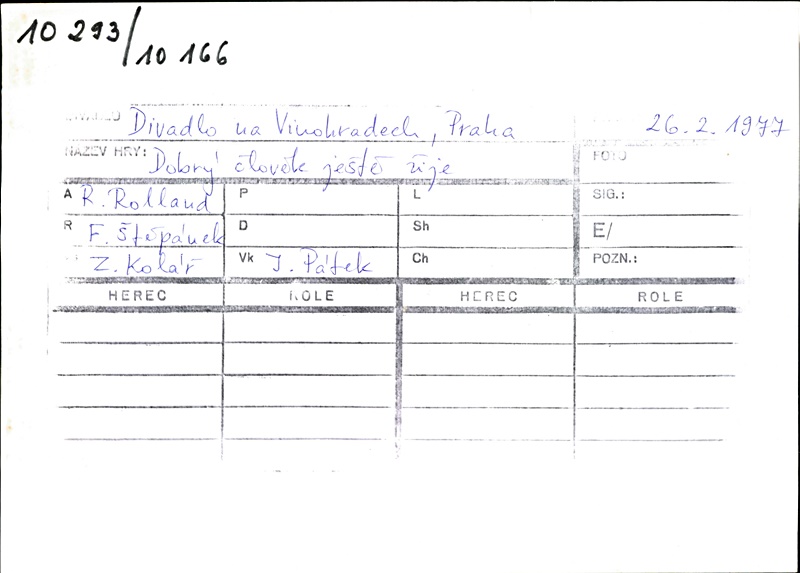 10 293/10 166
Divadlo na Vinohradech, Praha 26. 2. 1977
NÁZEV HRY: Dobrý člověk ještě žije FOTO
A R. Rolland P L SIG.:
R F. Štěpánek D Sh E/
Z. Kolář Vk J. Pátek Ch POZN.:
HEREC ROLE HEREC ROLE